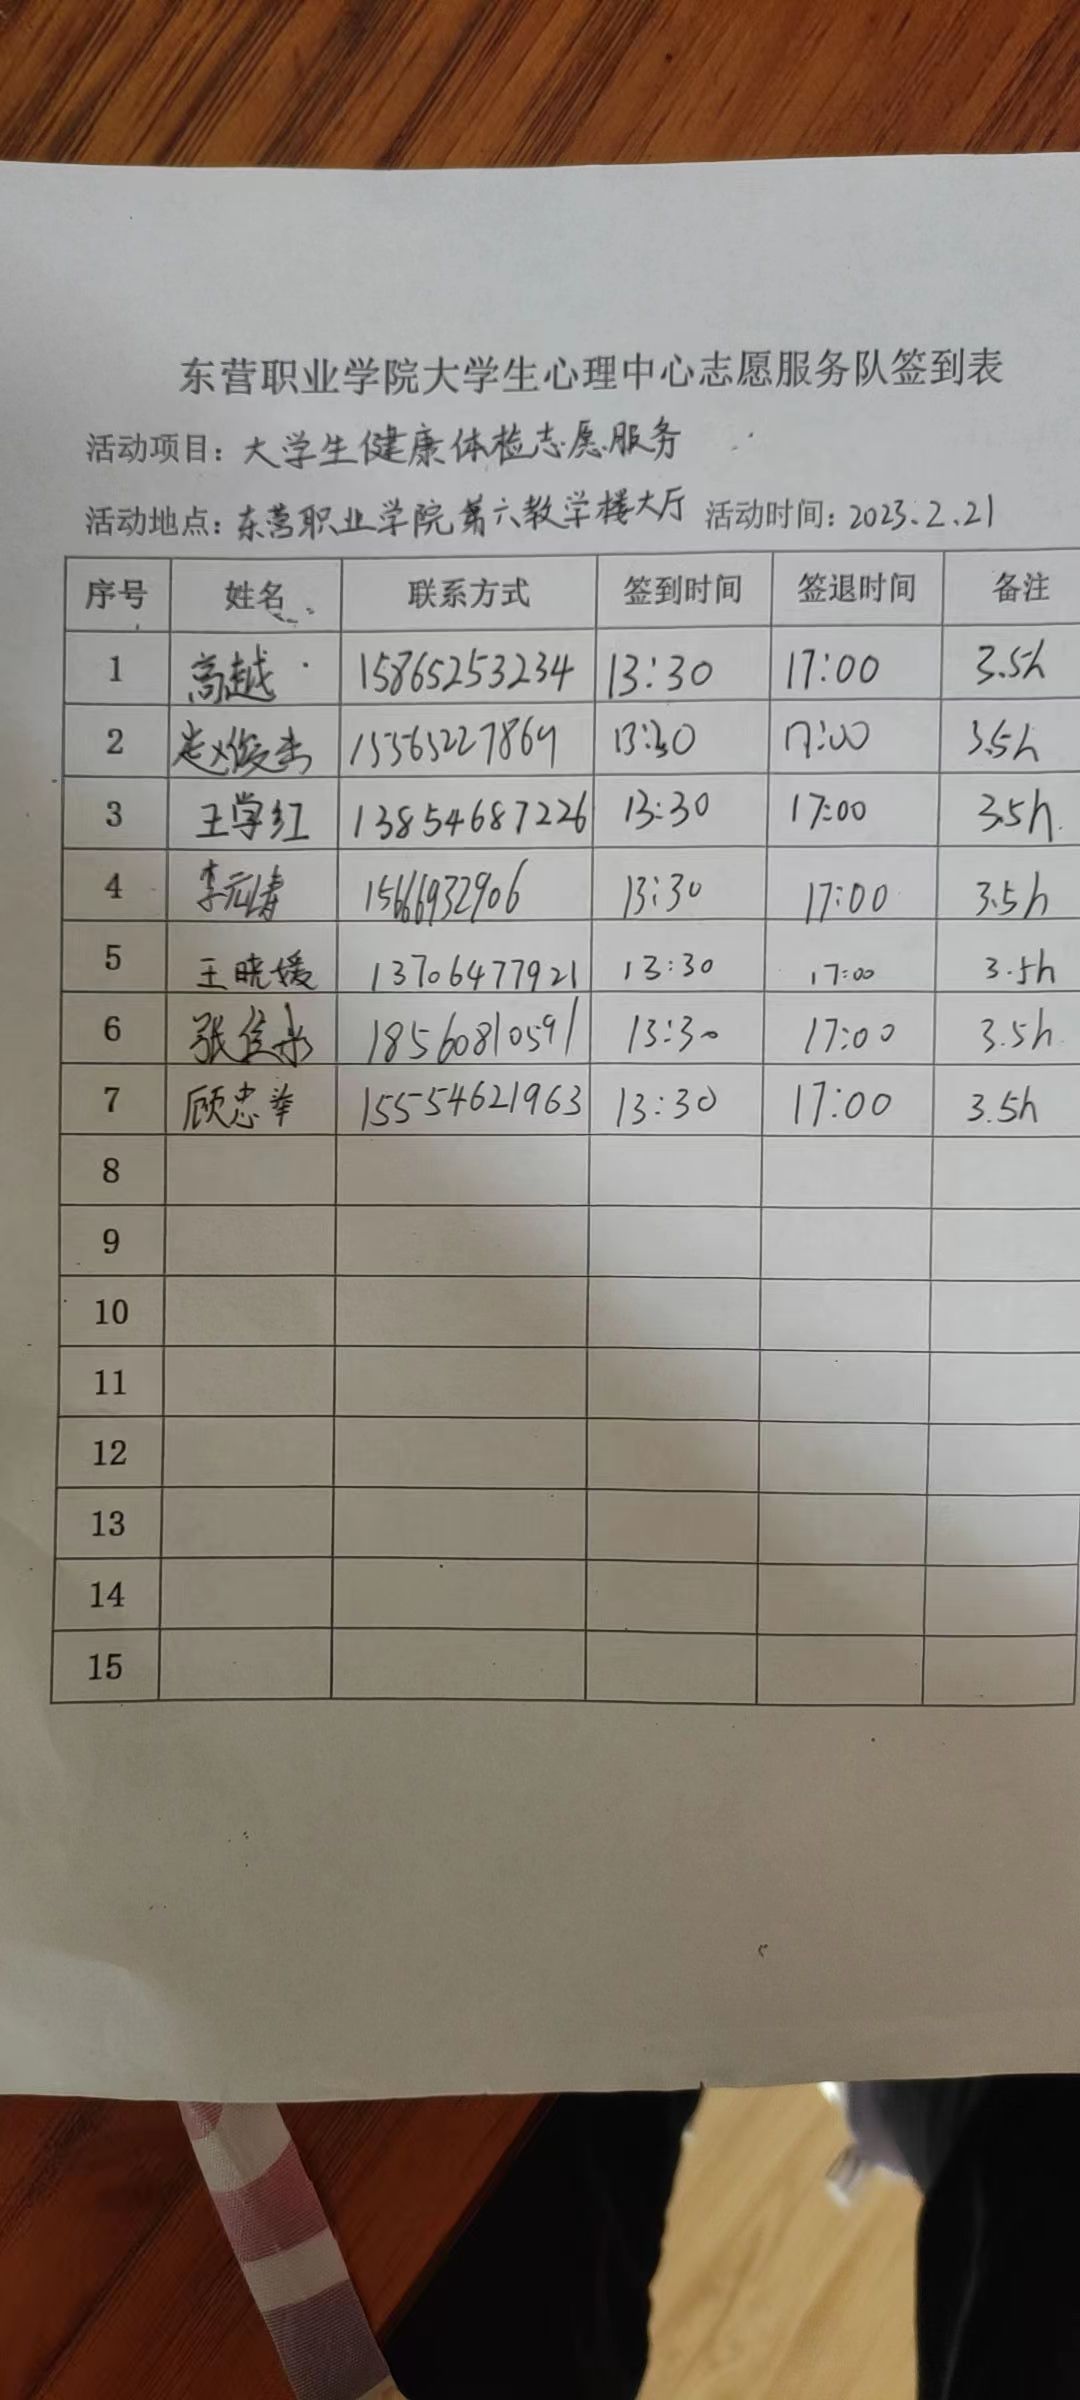 东营职业学院大学生心理中心志愿服务队签到表
活动项目: 大学生健康体检志愿服务
活动地点: 东营职业学院第六教学楼大厅 活动时间: 2023.2.21
序号 姓名 联系方式 签到时间 签退时间 备注
1 高越 15865253234 13:30 17:00 3.5h
2 赵俊杰 15565227869 13:30 17:00 3.5h
3 王学红 13854687226 13:30 17:00 3.5h
4 15666932906 13:30 17:00 3.5h
5 王晓媛 13706477921 13:30 17:00 3.5h
6 18560810591 13:30 17:00 3.5h
7 顾忠举 15554621963 13:30 17:00 3.5h
8
9
10
11
12
13
14
15